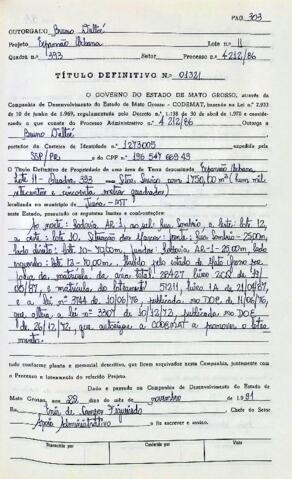 PAG. 303
OUTORGADO Bruno Daltoé
Projeto Expansão Urbana Lote n.º 11
Quadra n.º 393 Setor Processo n.º 4212/86
TÍTULO DEFINITIVO N.º 01321
O GOVERNO DO ESTADO DE MATO GROSSO, através da
Companhia de Desenvolvimento do Estado de Mato Grosso - CODEMAT, com base na Lei n.º 2.933
de 10 de junho de 1969, regulamentada pelo Decreto n.º 1.138 de 30 de abril de 1970 e conside-
rando o que consta do Processo Administrativo n.º 4212/86 Outorga a
Bruno Daltoé
portador da Carteira de Identidade n.º 1273005 expedida pelo
SSP/PR e do CPF n.º
O Título Definitivo de Propriedade de uma área de Terra denominada Expansão Urbana
Lote 11 - Quadra 393 com 1750,00 m² (um mil
setecentos e cinquenta metros quadrados)
localizada no município de Juara - MT
neste Estado, possuindo os seguintes limites e confrontações:
Ao norte: Rodovia AR-1, ao sul: Rua leste: lote 12
e oeste: lote 10. frente: Rua - 25,00m,
lado direito: lote 10-70,00m, fundos: Rodovia AR-1-25,00m, lado
esquerdo: lote 12-70,00m. pelo estado de Mato Grosso
da matrícula da área total: 28427 livro 2CQ de
/87, e matrícula do loteamento: 51211, livro 1A de 21/04/87,
e a lei nº 3744 de 10/06/76, publicada no DOE de 11/06/76,
que altera a lei nº 3307 de 10/12/72, publicada no DOE
de 26/12/72, que autoriza a CODEMAT a promover o lotea-
mento.
tudo conforme planta e memorial descritivo, que ficam arquivados nesta Companhia, juntamente com
o Processo e loteamento do referido Projeto.
Dado e passado na Companhia de Desenvolvimento do Estado de
Mato Grosso, aos 22 dias do mês de novembro de 1991
Eu, de Campos Figueiredo Chefe do Setor
Apoio Administrativo o fiz escrever e assino.
Transcrito por Conferido por Visto